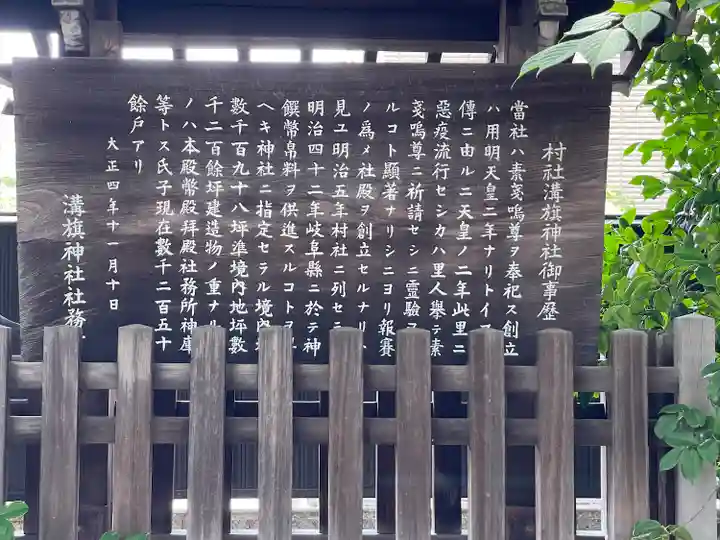 村社溝旗神社御事歷
當社ハ素戔嗚尊ヲ奉祀ス創立
ハ用明天皇二年ナリトイフ
傳ニ由ルニ天皇ノ二年此里ニ
惡疫流行セシカハ里人擧テ素
戔嗚尊ニ祈請セシニ靈驗ヱ
ルコト顯著ナリシニヨリ報賽
ノ爲メ社殿ヲ創立セルナリト
見ユ明治五年村社ニ列セラ
明治四十二年岐阜縣ニ於テ神
饌幣帛料ヲ供進スルコトヲ
ヘキ神社ニ指定セラル境內
數千百九十八坪準境內地坪數
千二百餘坪建造物ノ重ナル
ノハ本殿幣殿拜殿社務所神庫
等トス氏子現在數千二百五十
餘戶アリ
大正四年十一月十日
溝旗神社社務